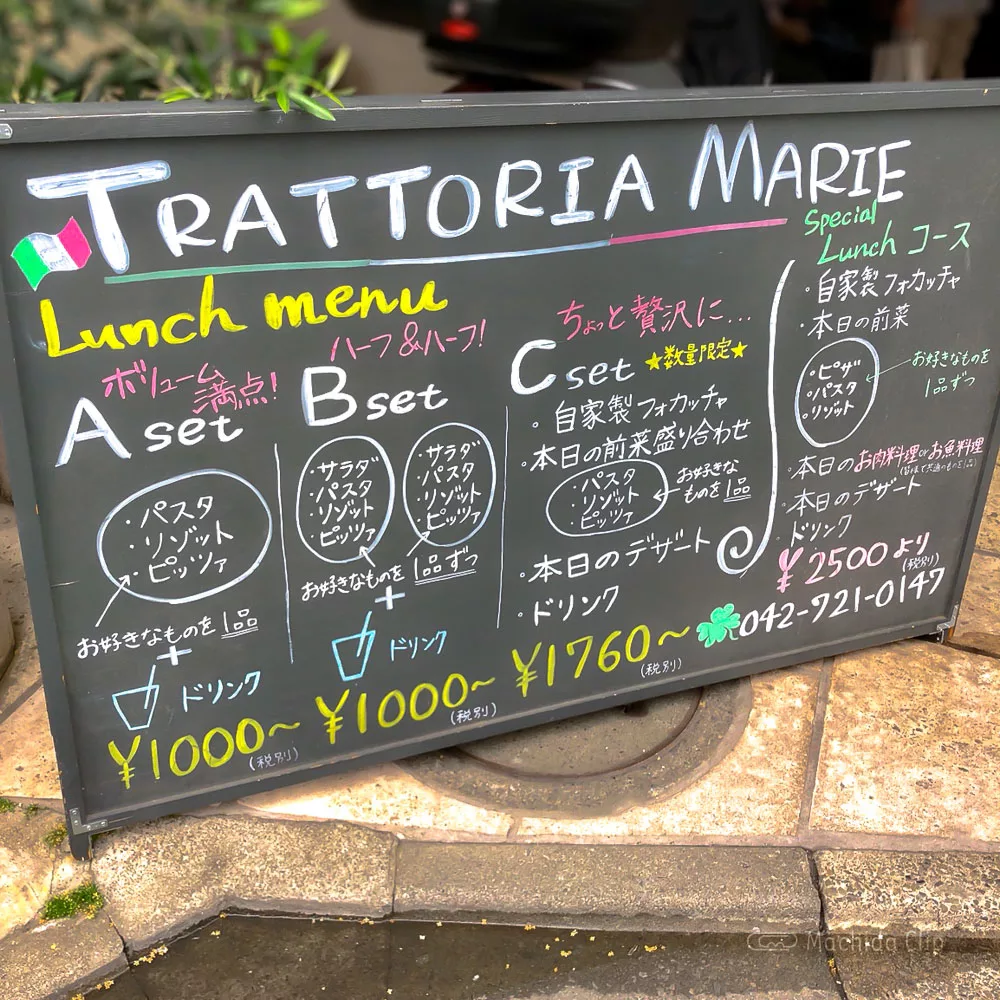 TRATTORIA MARIE
Lunch menu
ボリューム
満点!
A set
・パスタ
・リゾット
・ピッツァ
お好きなものを1品
+
ドリンク
¥1000〜
(税別)
ハーフ&ハーフ!
B set
・サラダ
・パスタ
・リゾット
・ピッツァ
・サラダ
・パスタ
・リゾット
・ピッツァ
お好きなものを1品ずつ
+
ドリンク
¥1000〜
(税別)
ちょっと贅沢に...
C set
★数量限定★
・自家製フォカッチャ
・本日の前菜盛り合わせ
・パスタ
・リゾット
・ピッツァ
お好きな
ものを1品
・本日のデザート
・ドリンク
¥1760〜
(税別)
Special
Lunch コース
・自家製フォカッチャ
・本日の前菜
・ピザ
・パスタ
・リゾット
お好きなものを
1品ずつ
・本日のお肉料理orお魚料理
・本日のデザート
・ドリンク
¥2500より
(税別)
042-721-0147
Machida Clip